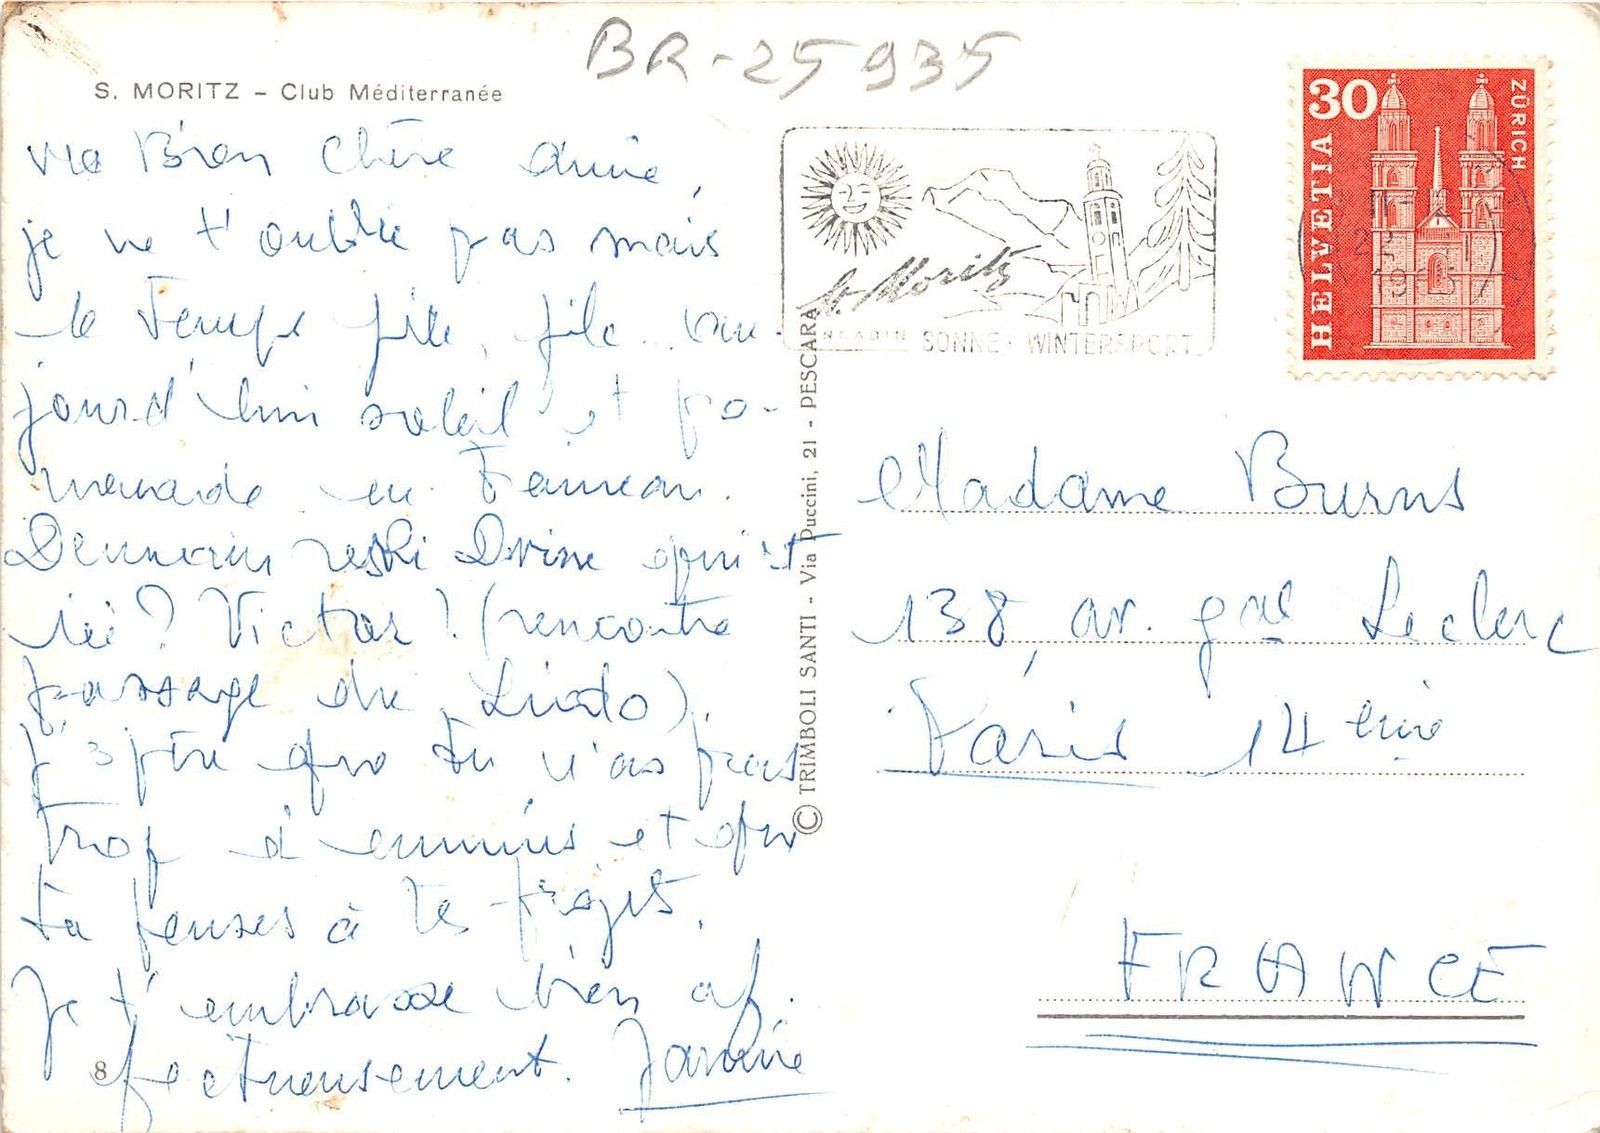 BR-25935
S. MORITZ – Club Méditerranée
Ma Bien Chère amie,
je ne t'oublie pas mais
le temps file, file... au-
jourd'hui soleil et pro-
menade en Traineau.
Demain reski Devine qui est
ici? Victor! (rencontre
passage du Lido).
J'espère que tu n'as pas
trop d'ennuis et que
tu penses à tes projets.
Je t'embrasse bien af-
fectueusement. Janine
8
© TRIMBOLI SANTI - Via Puccini, 21 - PESCARA
St. Moritz
ENGADIN SONNE · WINTERSPORT
30
HELVETIA
ZÜRICH
Madame Burns
138, av. gal Leclerc
Paris 14eme
FRANCE